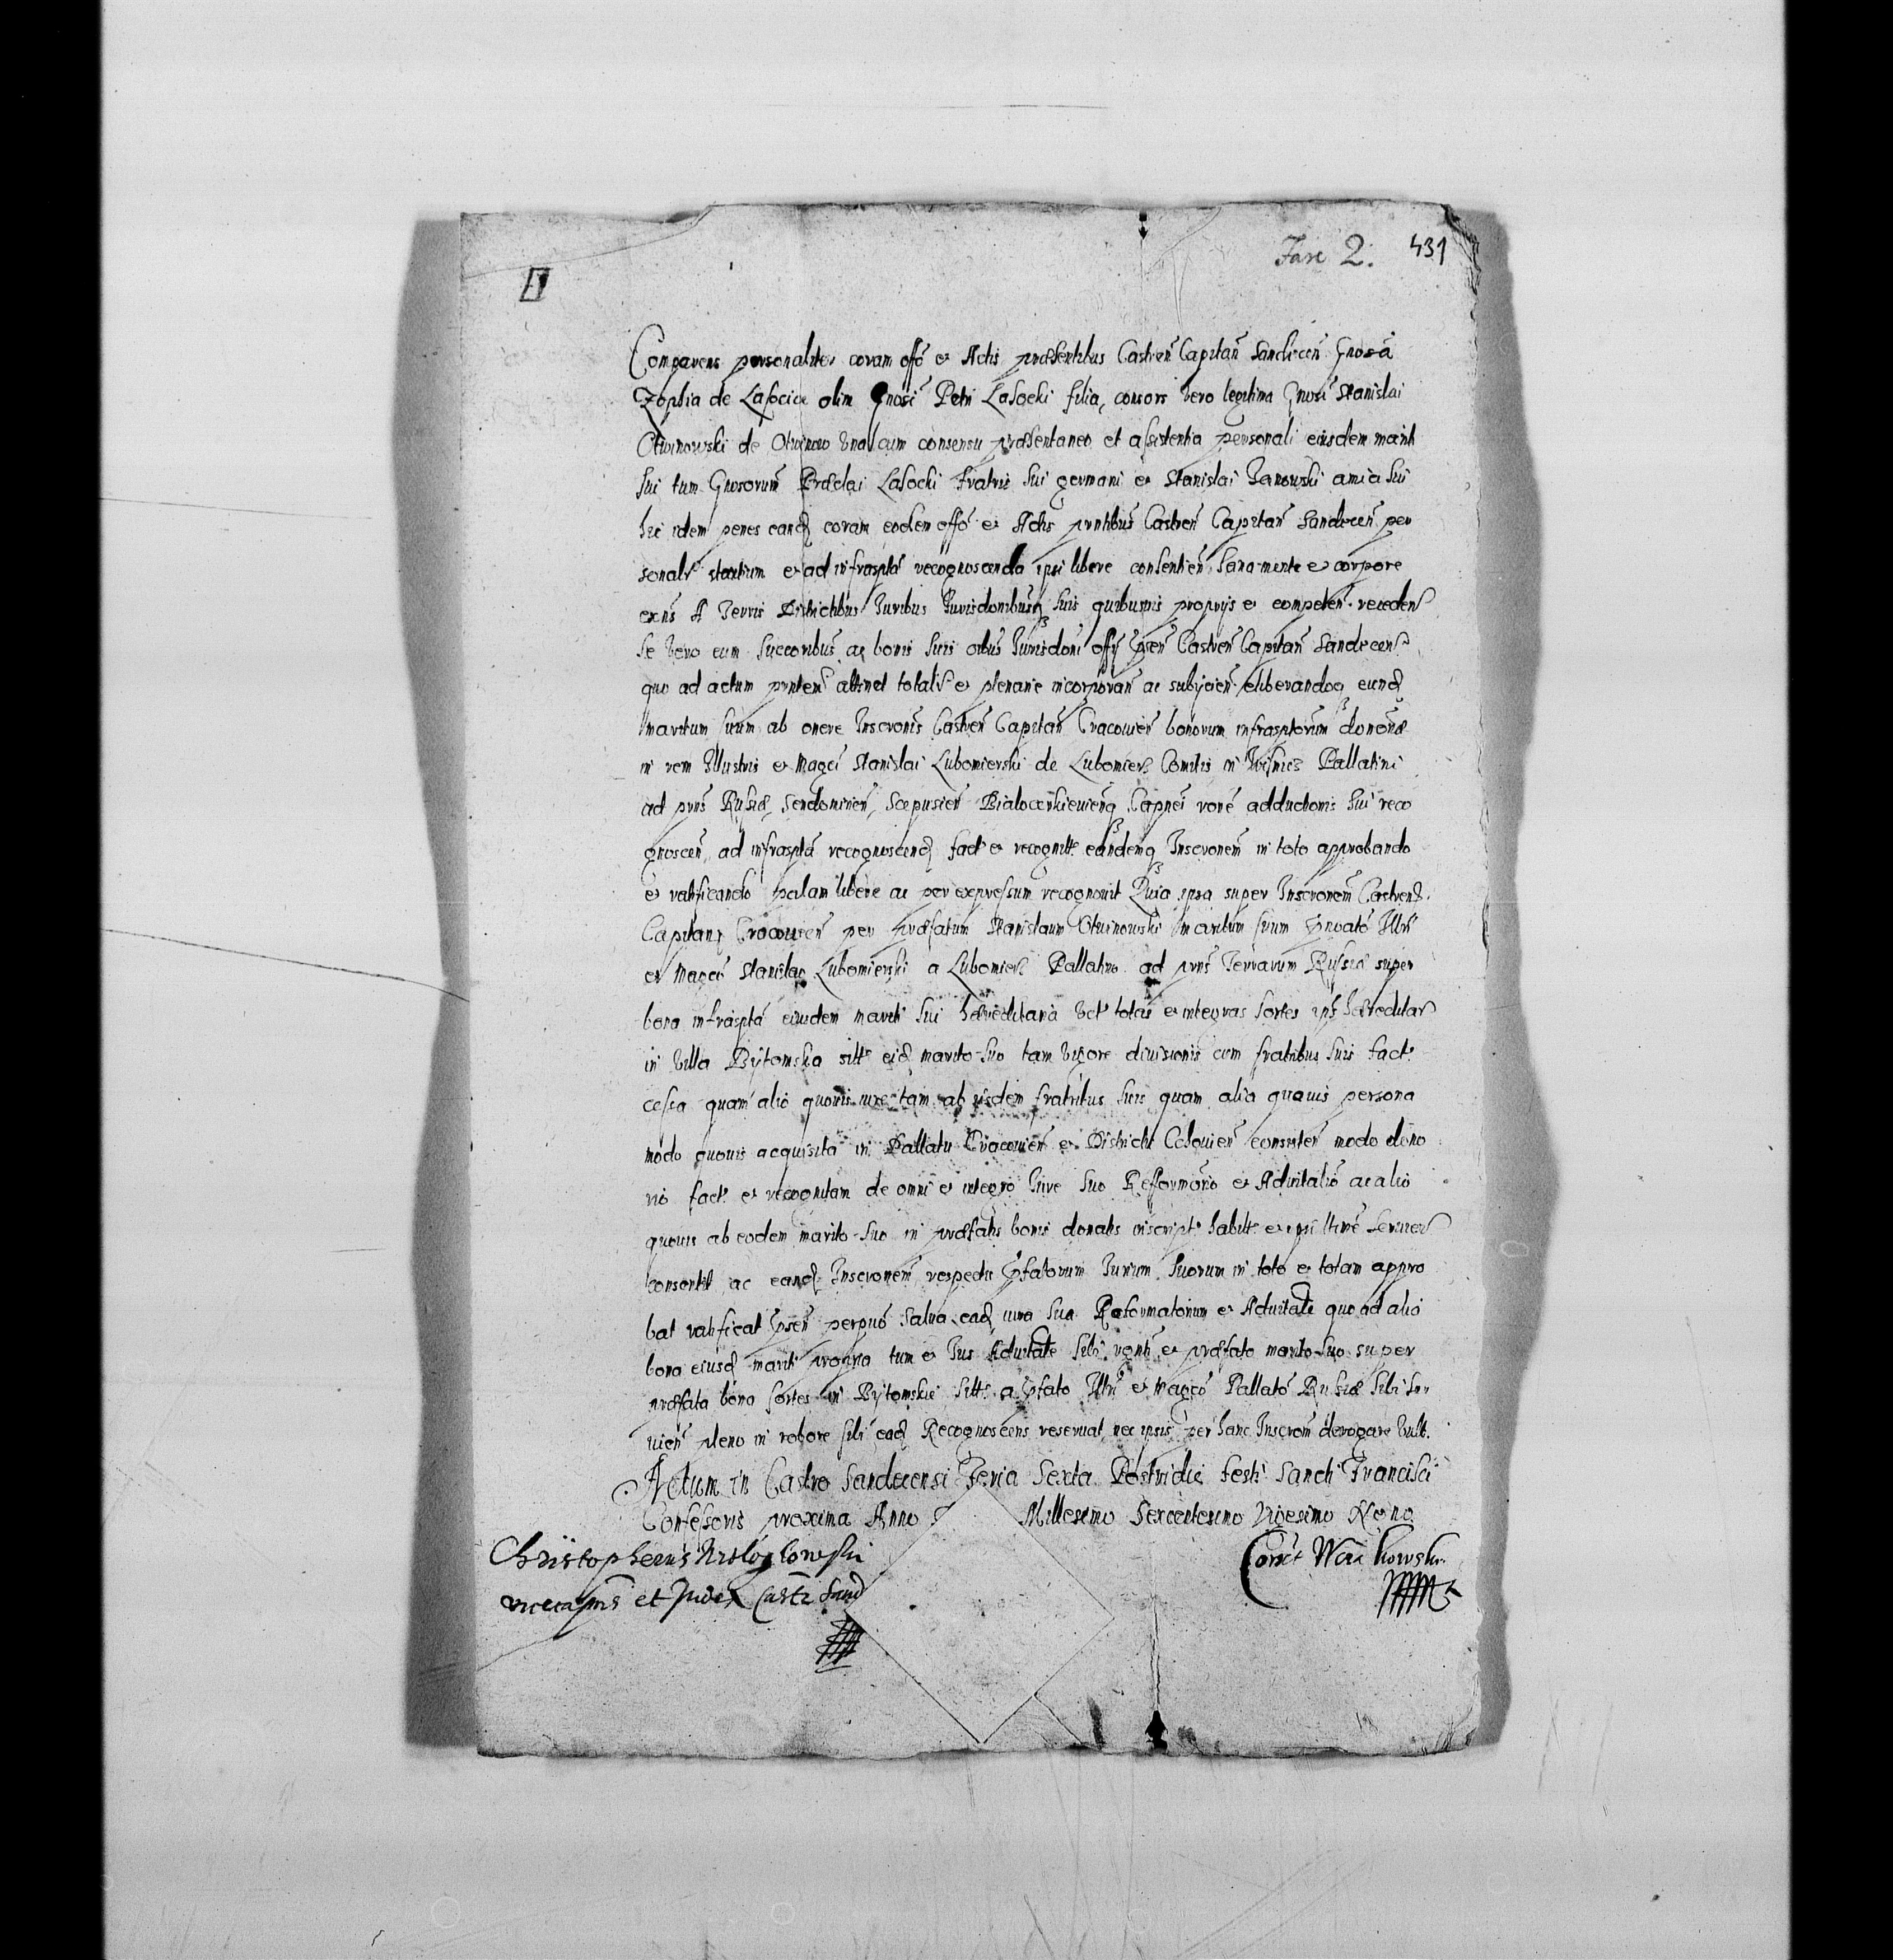 Fasc 2. 431
Comparens personaliter coram offō et Actis præsentibus Castren Capitan Sandecen Gnosa
Zophia de Lasocice olim Gnosi Petri Lasocki filia, consors vero legitima Gnosi Stanislai
Otwinowski de Otwinow vna cum consensu præsentaneo et assistentia personali eiusdem mariti
sui tum Gnosorum Lasocki fratris sui germani et Stanislai Janowski amici sui
hic idem penes eandq coram eodem offō et Actis pntibus Castren Capitan Sandecen per
sonalr stantium et ad infrasptā recognoscenda ipsi libere consentien, sana mente et corpore
exns A Terris Districtibus Iuribus Iurisdonibusq suis quibusuis proprijs et competen. receden
se vero cum succoribus ac bonis suis oibus Iurisdoni offy Castren Capitan Sandecen
quo ad actum pntem attinet totalr et plenarie incorporan ac subijcien. eliberandoq eundq
maritum suum ab onere Inscronis Castren Capitan Cracouien bonorum infrasptorum donōnis
in rem Illustris et Magci Stanislai Lubomierski de Lubomierz Comitis in Wisnicz Pallatini
ad pns Russiæ, Sendomirien, Scepusien Bialocerkieuienq Capnei rone adductionis sui reco
gnoscen, ad infrasptā recognoscendq fact et recognitt eandemq Inscronem in toto approbando
et ratificando palam libere ac per expressum recognouit Quia ipsa super Inscronem Castren.
Capitan Cracouien per præfatum Stanislaum Otwinowski maritum suum Illri
et Magco Stanislao Lubomierski a Lubomierz Pallatino ad pns Terrarum Russiæ super
bona infrasptā eiusdem mariti sui hæreditaria vct totas et integras sortes ips hæreditar
in villa Bytomska sitt eidq marito suo tam vigore diuisionis cum fratribus suis fact
cessa quam alio quouis iure tam ab ijsdem fratribus suis quam alia quauis persona
modo quouis acquisita in Pallatu Cracouien et Districtu consisten modo dono
rio fact et recognitam de omni et integro iure suo Refformorio et Aduitalio ac alio
quouis ab eodem marito suo in præfatis bonis donatis inscript habitt et ipsi seruien
consentit ac eandq Inscronem respectu pfatorum Iurium suorum in toto et totam appro
bat ratificat perpuo salua eadq iura sua Reformatorium et Aduitale quo ad alia
bona eiusdq mariti propria tum et Ius Aduitale sibi et præfato marito suo super
præfata bona sortes in Bytomskie sitt a pfato Illri et Magco Pallato Russiæ sibi ser
uien pleno in robore sibi eadq Recognoscens reseruat nec ipsis per hanc Inscrom derogare vult.
Actum in Castro Sandecensi Feria Sexta Postridie festi Sancti Francisci
Confessoris proxima Anno Millesimo Sexcentesimo Vigesimo Nono
Christopherus Wieloglowski
vicecapns et Judex Castr Sand